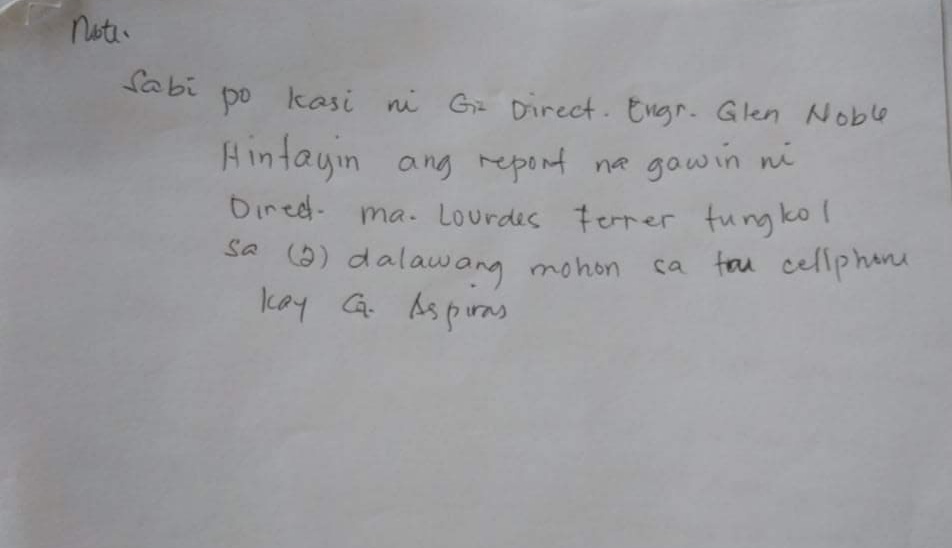 Note.
Sabi po kasi ni G. Direct. Engr. Glen Noble
Hintayin ang report na gawin ni
Direct. ma. Lourdes Ferrer tungkol
sa (2) dalawang mohon sa cellphone
kay G. Aspiras